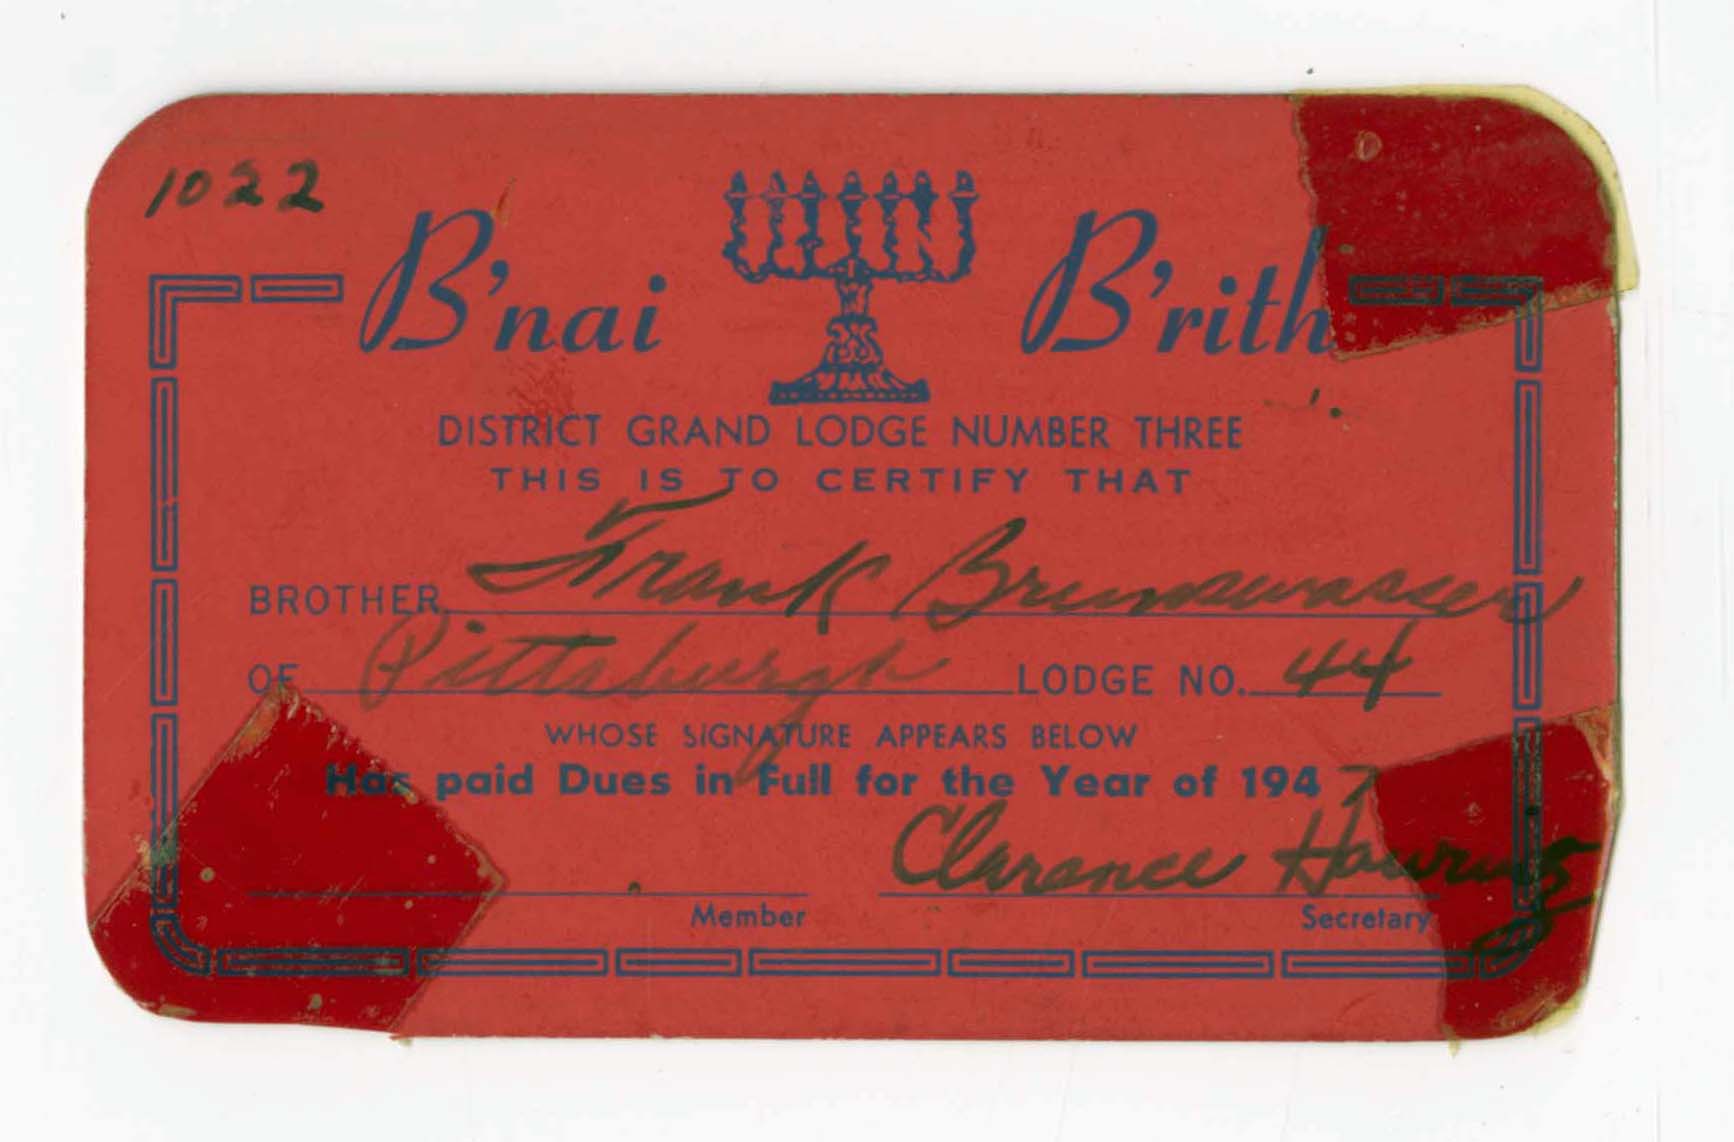 1022
B'nai B'rith
DISTRICT GRAND LODGE NUMBER THREE
THIS IS TO CERTIFY THAT
BROTHER Frank Brunswasser
OF Pittsburgh LODGE NO. 44
WHOSE SIGNATURE APPEARS BELOW
Has paid Dues in Full for the Year of 1947
Clarence
Member Secretary